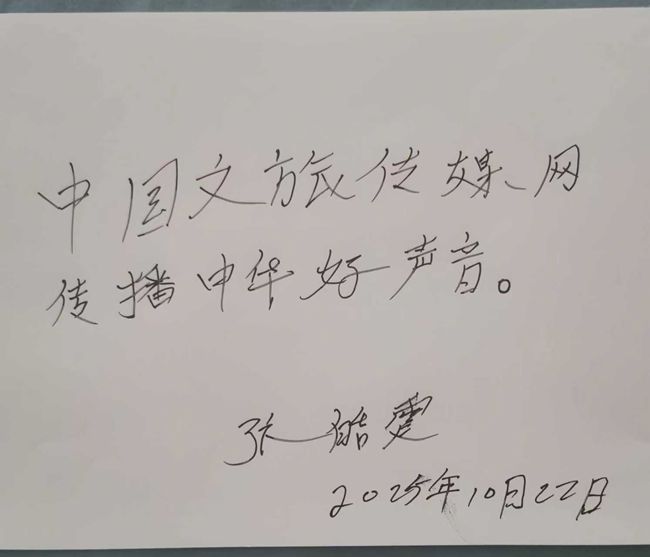 中国文旅传媒网
传播中华好声音。
张皓雯
2025年10月22日